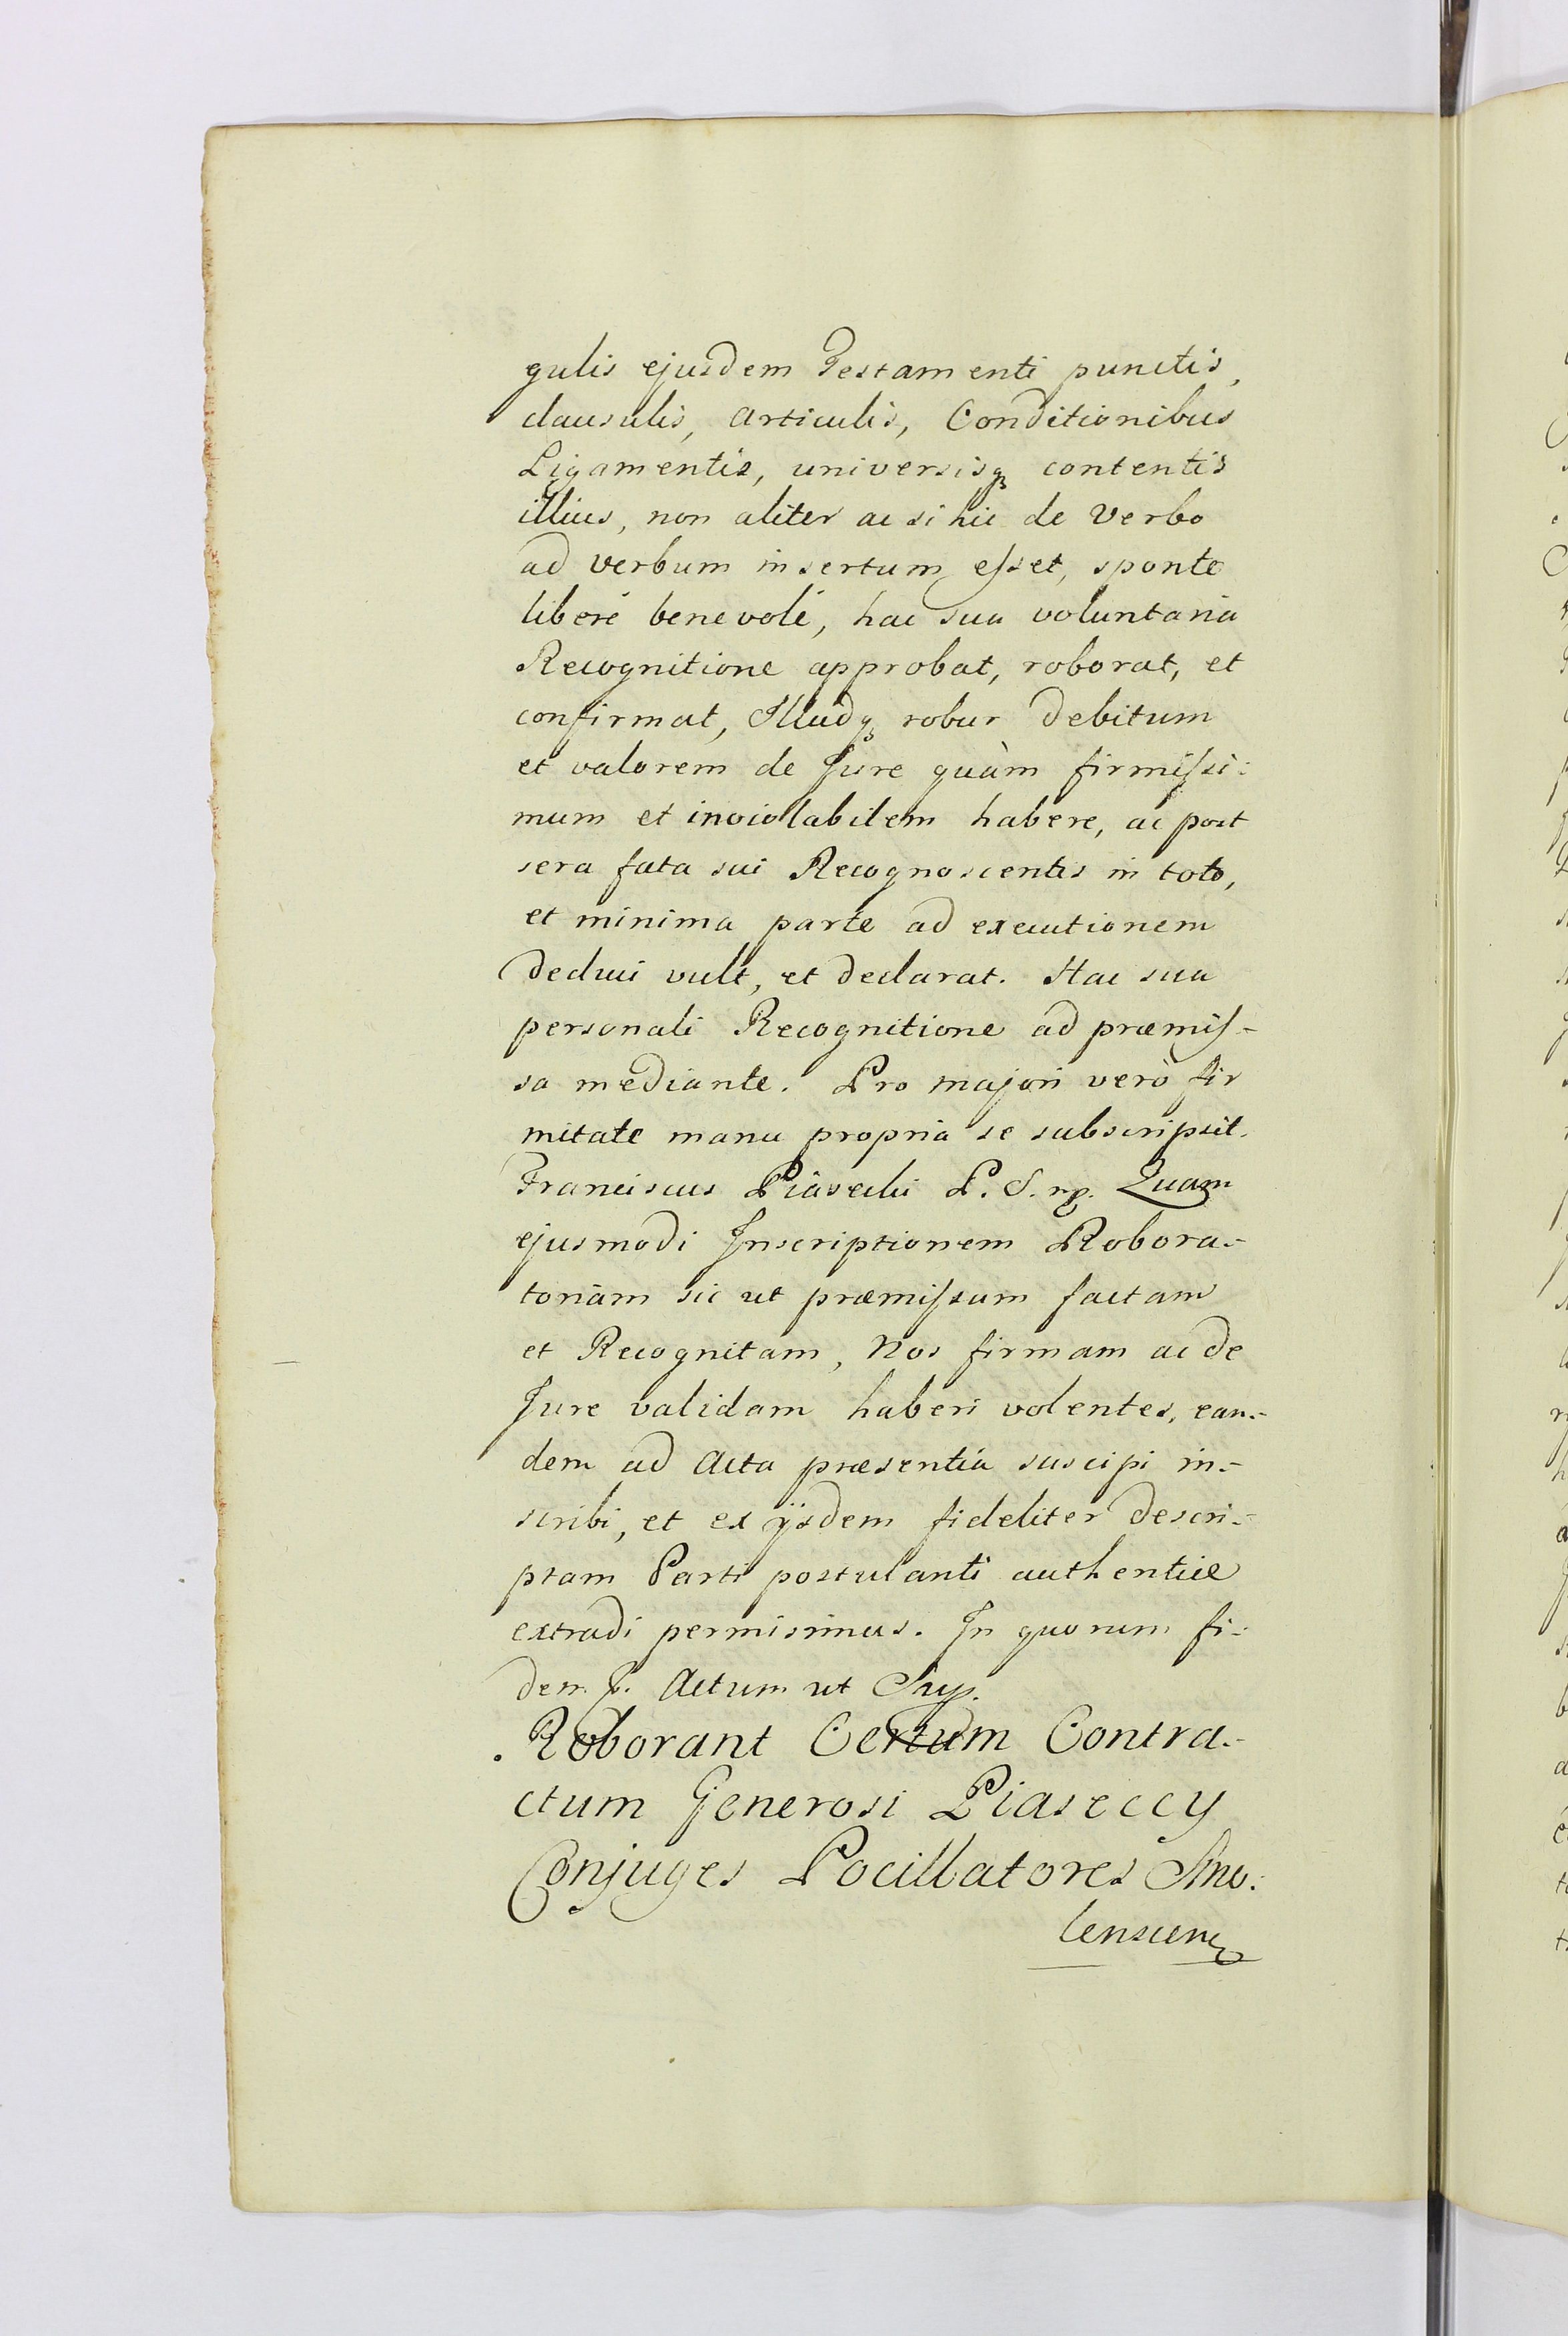 gulis ejusdem Testamenti punctis,
clausulis, Articulis, Conditionibus
Ligamentis, universisq₃ contentis
illius, non aliter ac si hic de Verbo
ad Verbum insertum esset, sponte
liberé benevolé, hac sua voluntaria
Recognitione approbat, roborat, et
confirmat, Illudq₃ robur debitum
et valorem de Jure quàm firmissi:
mum et inviolabilem habere, ac post
sera fata sui Recognoscentis in toto,
et minima parte ad executionem
deduci vult, et declarat. Hac sua
personali Recognitione ad præmis-
sa mediante. Pro majori verò fir
mitate manu propria se subscripsit.
Franciscus Piasecki P. S. mp. Quam
ejusmodi Inscriptionem Robora-
toriam sic ut præmissum factam
et Recognitam, Nos firmam ac de
Jure validam haberi volentes, ean-
dem ad Acta præsentia suscipi in-
scribi, et ex ijsdem fideliter descri-
ptam Parti postulanti authentice
extradi permisimus. In quorum fi-
dem p. Actum ut Sup.
Roborant Certum Contra-
ctum Generosi Piaseccy
Conjuges Pocillatores Smo:
lenscen